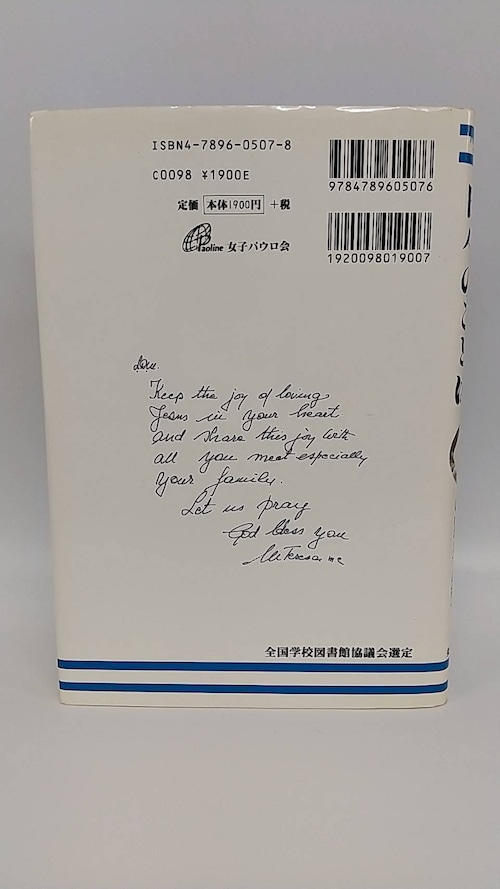 ISBN4-7896-0507-8
C0098 ¥1900E
定価 本体1900円 +税
Paoline 女子パウロ会
9784789605076
1920098019007
Keep the joy of loving
Jesus in your heart
and share this joy with
all you meet especially
your family.
Let us pray
God bless you
M Teresa mc
全国学校図書館協議会選定